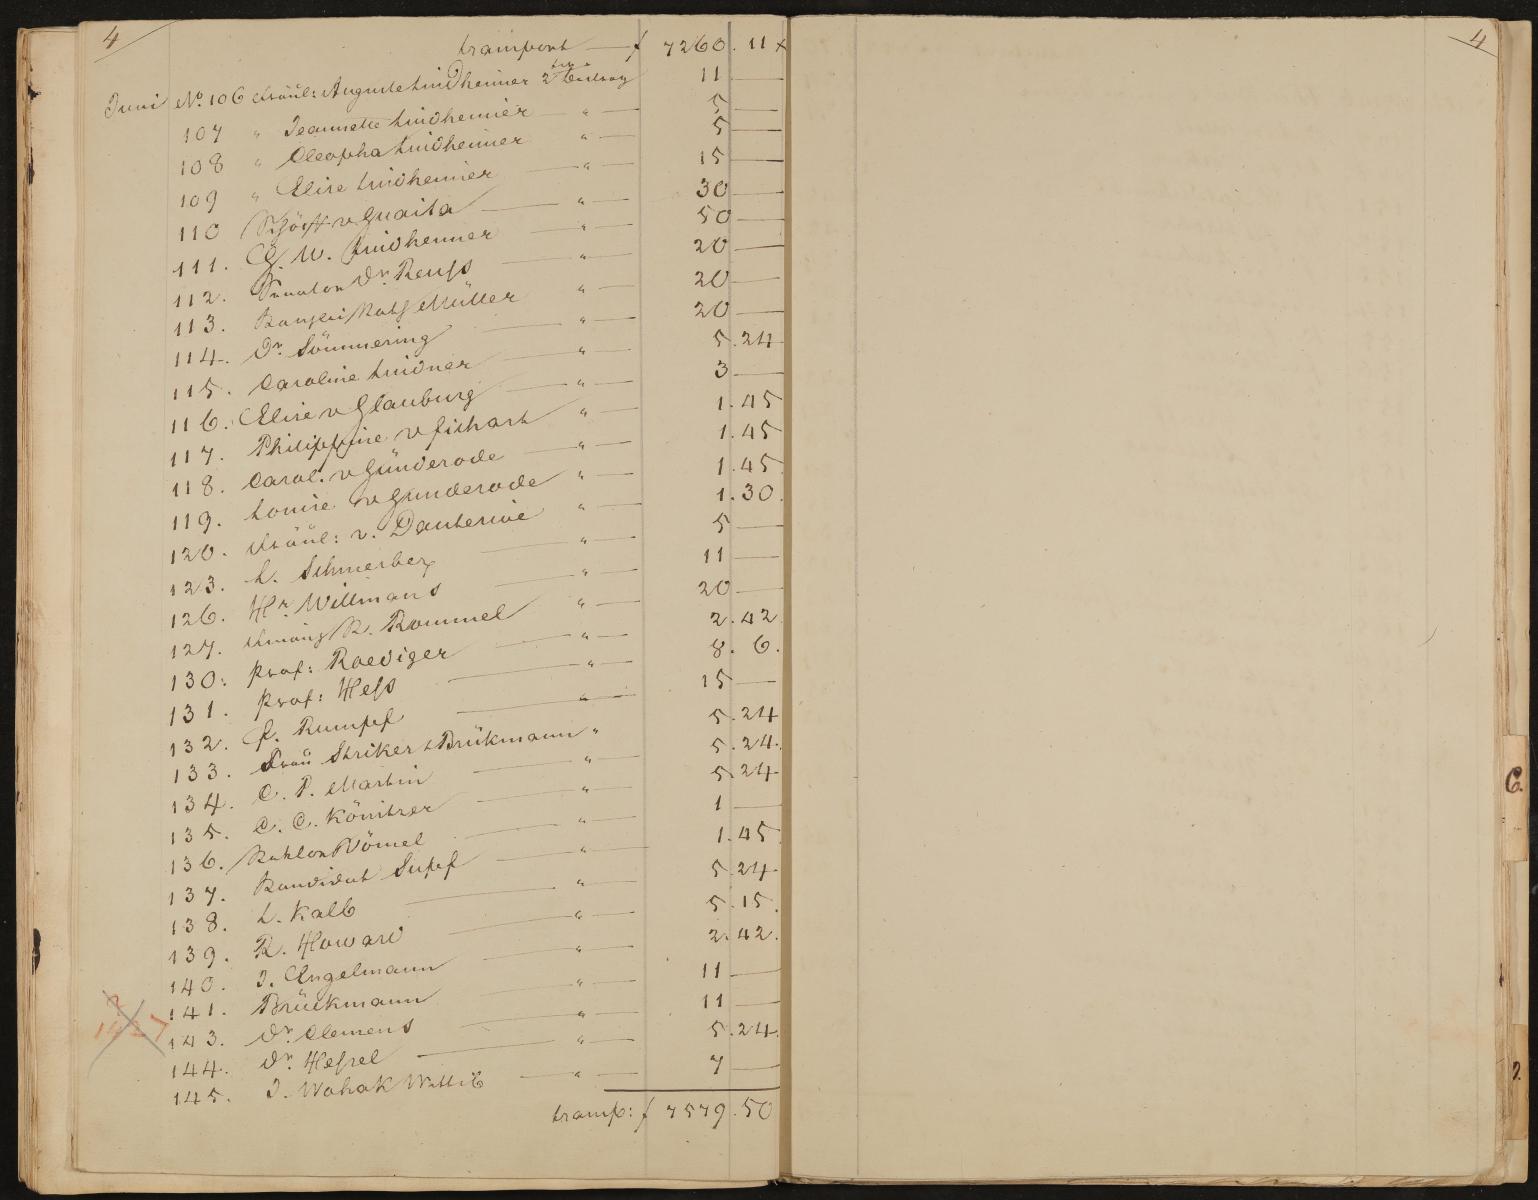 4
transport — f 7260. 11 x
Juni No. 106 Fräul: Auguste Lindheimer 2ter Beitrag 11 —
107 " Jeannette Lindheimer — " — 5 —
108 " Cleopha Lindheimer " — 5 —
109 " Elise Lindheimer — " — 15 —
110 Schöff v Guaita — " — 30 —
111. G. W. Lindheimer — " — 50 —
112. Senator Dr. Reuss — " — 20 —
113. Kanzlei Rath Müller " — 20 —
114. Dr. Sömmering — " — 20 —
115. Caroline Lindner — " — 5. 24
116. Elise v Glauburg — " — 3 —
117. Philippine v Fichart " — 1. 45
118. Carol. v Günderode — " — 1. 45
119. Louise v Günderode " — 1. 45
120. Fräul: v. Dauterive " — 1. 30.
123. L. Schmerber — " — 5 —
126. Hr. Willmans — " — 11 —
127. R. Rommel " — 20 —
130. Prof: Roediger — " — 2. 42
131. Prof: Hess — " — 8. 6.
132. F. Rumpf — " — 15 —
133. Frau Striker & Brükmann " 5. 24
134. C. P. Martin — " 5. 24.
135. C. C. Könitzer — " 5 24
136. Rektor Vömel — " 1 —
137. Kandidat Supf — " 1. 45
138. L. Kalb — " — 5 24
139. R. Howard — " — 5. 15.
140. J. Engelmann — " — 2. 42.
141. Brückmann — " — 11 —
143. Dr. Clemens — " — 11 —
144. Dr. Hessel — " — 5. 24.
145. J. — " — 7 —
transp: f 7579. 50
4